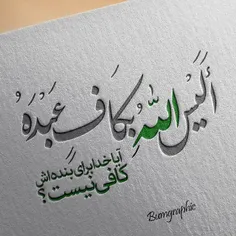 أَلَيْسَ اللَّهُ بِكَافٍ عَبْدَهُ
آیا خدا برای بنده‌اش
کافی نیست؟
Bumgraphic